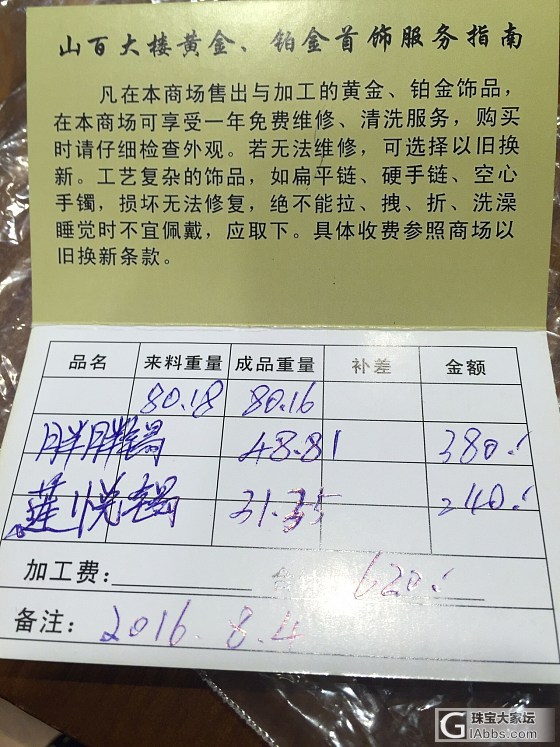 山百大楼黄金、铂金首饰服务指南
凡在本商场售出与加工的黄金、铂金饰品，
在本商场可享受一年免费维修、清洗服务，购买
时请仔细检查外观。若无法维修，可选择以旧换
新。工艺复杂的饰品，如扁平链、硬手链、空心
手镯，损坏无法修复，绝不能拉、拽、折、洗澡
睡觉时不宜佩戴，应取下。具体收费参照商场以
旧换新条款。
品名 来料重量 成品重量 补差 金额
80.18 80.16
胖胖镯 48.81 380.
莲悦镯 31.35 240.
加工费： 620.
备注： 2016.8.4
珠宝大家坛
GIAbbs.com